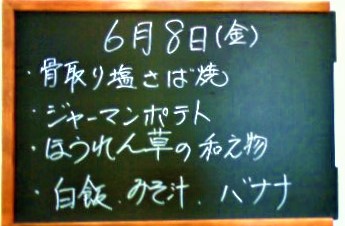 6月8日(金)
・骨取り塩さば焼
・ジャーマンポテト
・ほうれん草の和え物
・白飯、みそ汁、バナナ